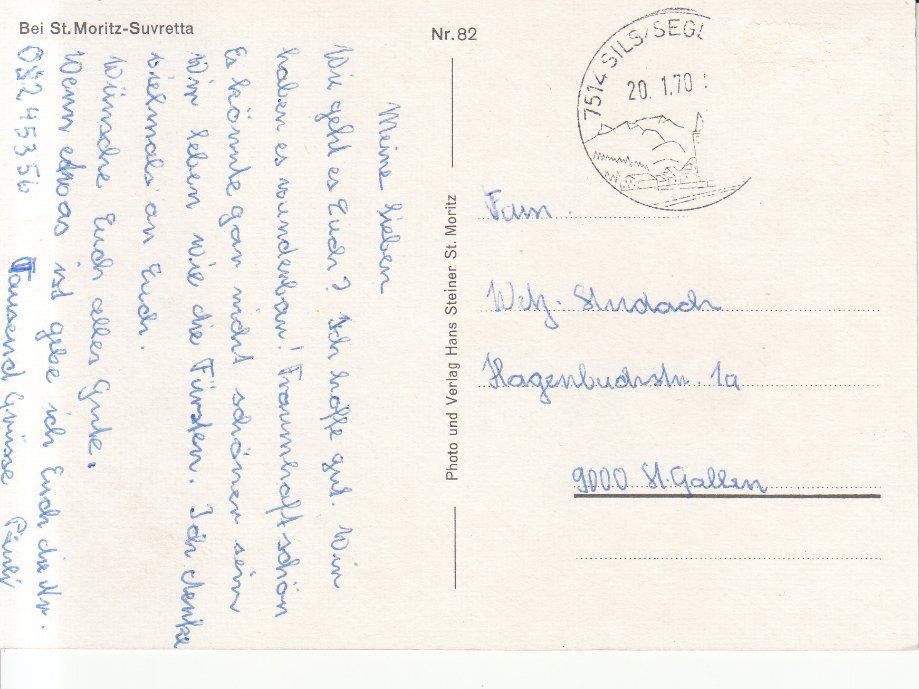 Bei St. Moritz-Suvretta
Nr. 82
7514 SILS/SEGL
20. 1.70
Photo und Verlag Hans Steiner St. Moritz
Meine Lieben
Wie geht es Euch? Ich hoffe gut. Wir
haben es wunderbar! Traumhaft schön
Es könnte gar nicht schöner sein
Wir leben wie die Fürsten. Ich denke
vielmals an Euch.
Wünsche Euch alles Gute.
Wenn etwas ist gebe ich Euch die Nr.
082 45356
Tausend Grüsse
Fam.
Welz-Studach
Hagenbuchstr. 1a
9000 St. Gallen